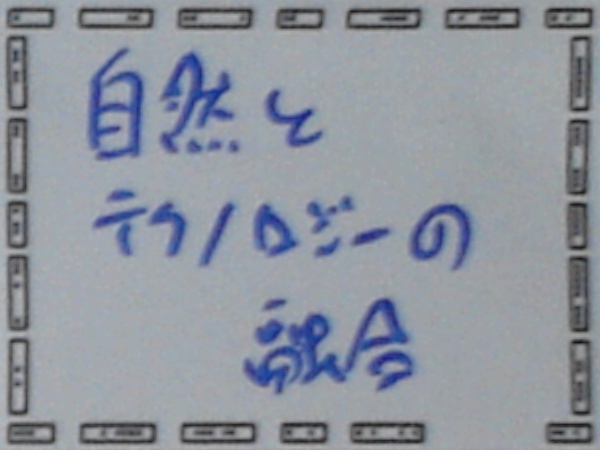 自然と
テクノロジーの
融合